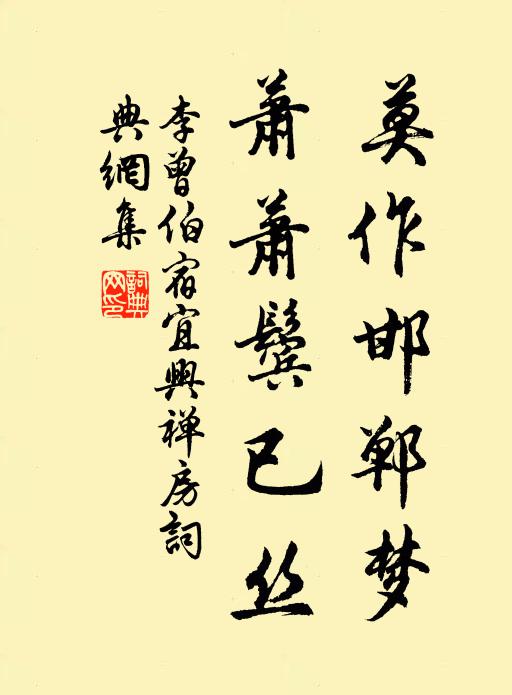 莫作邯郸梦
萧萧鬓已丝
李曾伯宿宜興禅房詞
典網集
詞典
网印